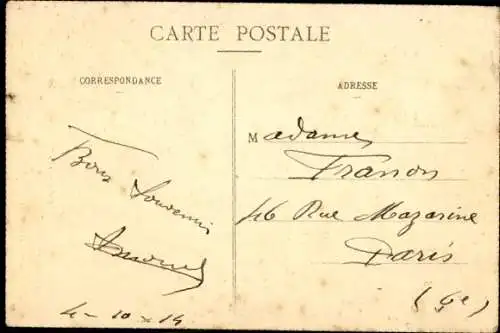 CARTE POSTALE
CORRESPONDANCE
Bons
Souvenirs
4-10-14
ADRESSE
Madame
Franon
46 Rue Mazarine
Paris
(6e)